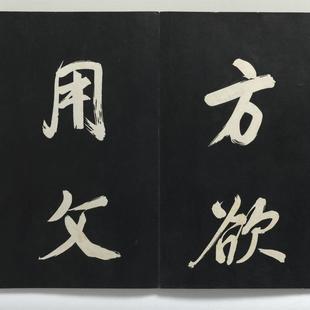 方欲
用文